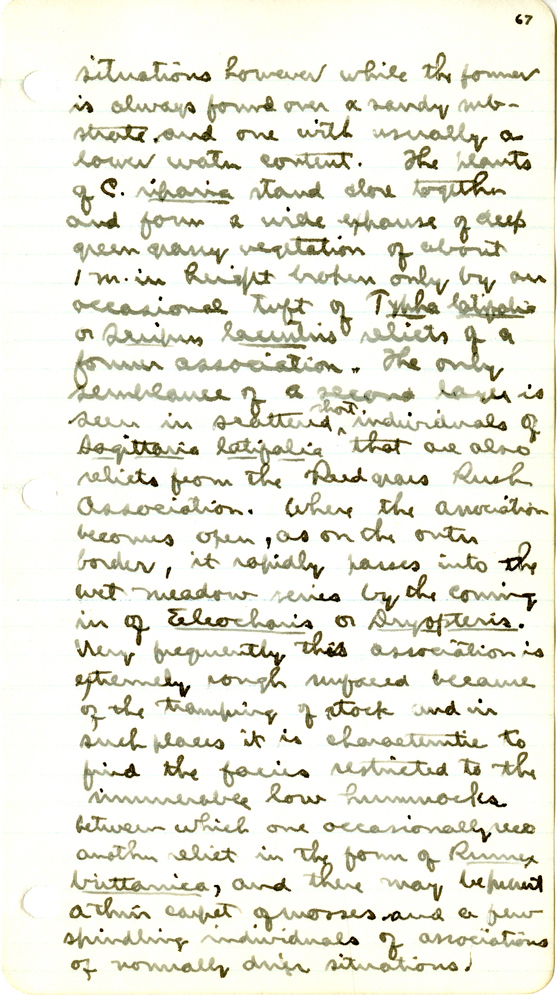 67
situations however while the former
is always found over a sandy sub-
strate and one with usually a
lower water content. The plants
of C. riparia stand close together
and form a wide expanse of deep
green grassy vegetation of about
1 m. in height broken only by an
occasional tuft of Typha latifolia
or Scirpus lacustris relicts of a
former association. The only
semblance of a second layer is
seen in scattered short individuals of
Sagittaria latifolia that are also
relicts from the Reed grass Rush
Association. Where the association
becomes open, as on the outer
border, it rapidly passes into the
wet meadow series by the coming
in of Eleocharis or Dryopteris.
Very frequently this association is
extremely rough surfaced because
of the tramping of stock and in
such places it is characteristic to
find the facies restricted to the
innumerable low hummocks
between which one occasionally sees
another relict in the form of Rumex
brittanica, and there may be present
a thin carpet of mosses and a few
spindling individuals of associations
of normally drier situations.